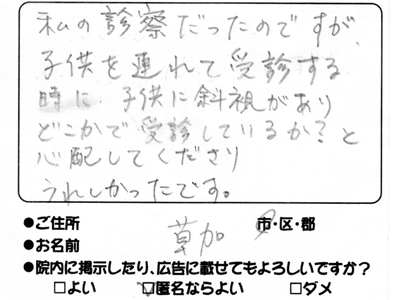 私の診察だったのですが、
子供を連れて受診する
時に、子供に斜視があり
どこかで受診しているか?と
心配してくださり
うれしかったです。
●ご住所 草加 市・区・郡
●お名前
●院内に掲示したり、広告に載せてもよろしいですか?
□よい □匿名ならよい □ダメ